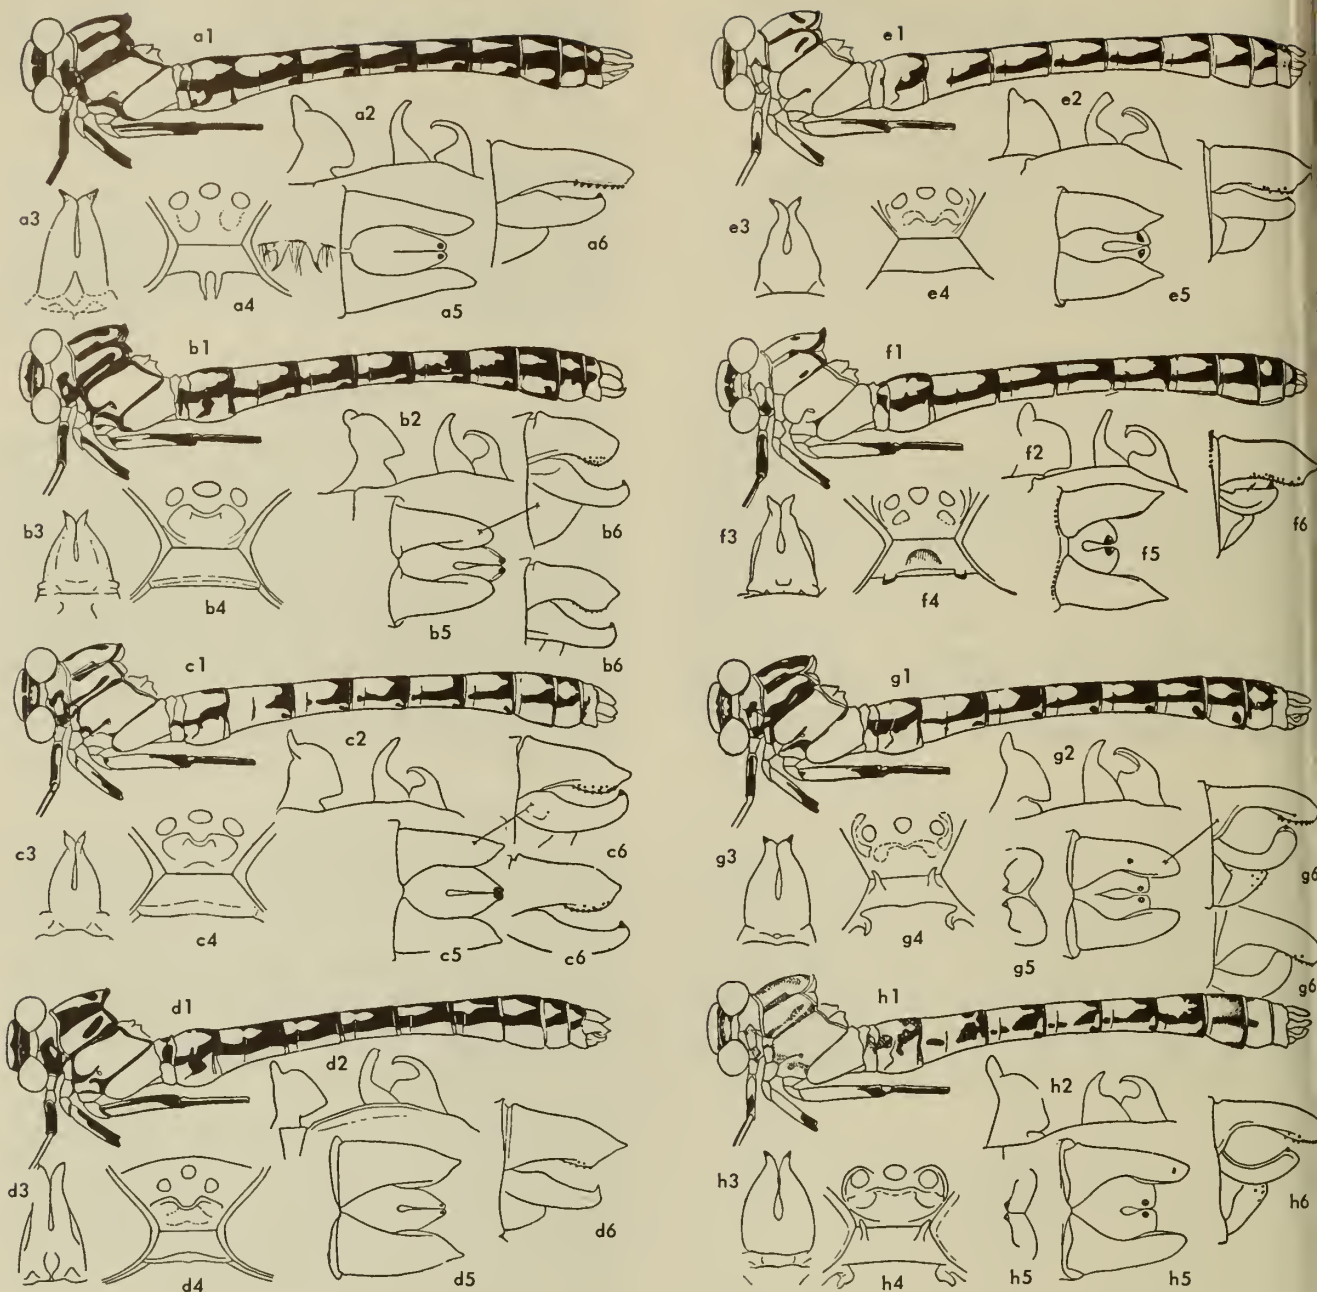 a1
a2
a3
a4
a5
a6
b1
b2
b3
b4
b5
b6
b6
c1
c2
c3
c4
c5
c6
c6
d1
d2
d3
d4
d5
d6
e1
e2
e3
e4
e5
e6
f1
f2
f3
f4
f5
f6
g1
g2
g3
g4
g5
g6
g6
h1
h2
h3
h4
h5
h5
h6